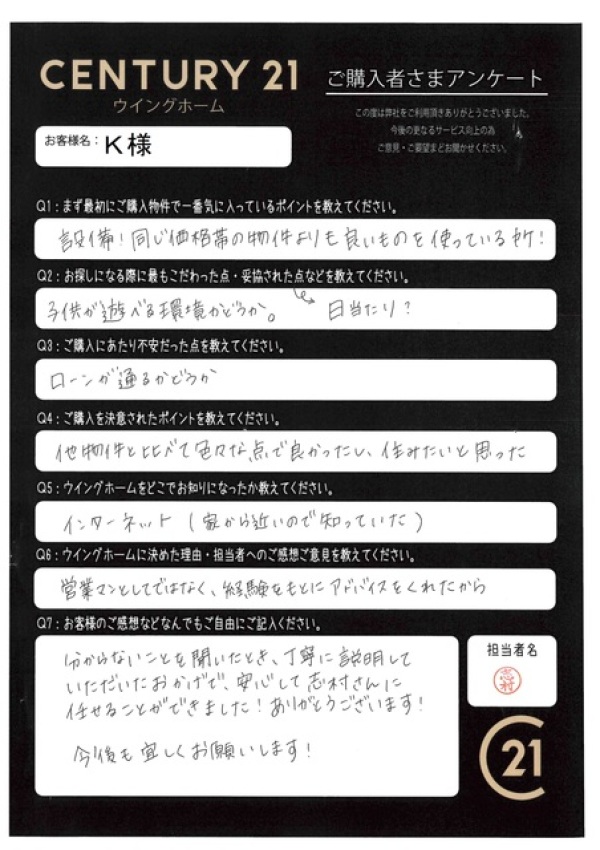 CENTURY 21
ウイングホーム
ご購入者さまアンケート
この度は弊社をご利用頂きありがとうございました。
今後の更なるサービス向上の為
ご意見・ご要望まどお聞かせください。
お客様名：K様
Q1：まず最初にご購入物件で一番気に入っているポイントを教えてください。
設備！同じ価格帯の物件よりも良いものを使っている所！
Q2：お探しになる際に最もこだわった点・妥協された点などを教えてください。
子供が遊べる環境かどうか。 日当たり？
Q3：ご購入にあたり不安だった点を教えてください。
ローンが通るかどうか
Q4：ご購入を決意されたポイントを教えてください。
他物件と比べて色々な点で良かったし、住みたいと思った
Q5：ウイングホームをどこでお知りになったか教えてください。
インターネット（家から近いので知っていた）
Q6：ウイングホームに決めた理由・担当者へのご感想ご意見を教えてください。
営業マンとしてではなく、経験をもとにアドバイスをくれたから
Q7：お客様のご感想などなんでもご自由にご記入ください。
分からないことを聞いたとき、丁寧に説明して
いただいたおかげで、安心して志村さんに
任せることができました！ありがとうございます！
今後も宜しくお願いします！
担当者名
志村
C21